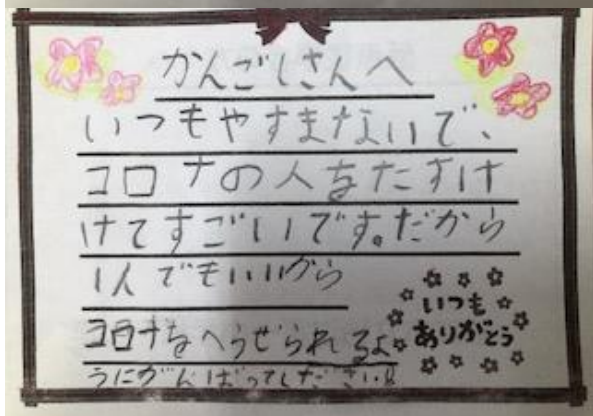 かんごしさんへ
いつもやすまないで、
コロナの人をたすけ
けてすごいです。だから
1人でもいいから
コロナをへらせられるよ
うにがんばってしださい!!
いつも
ありがとう